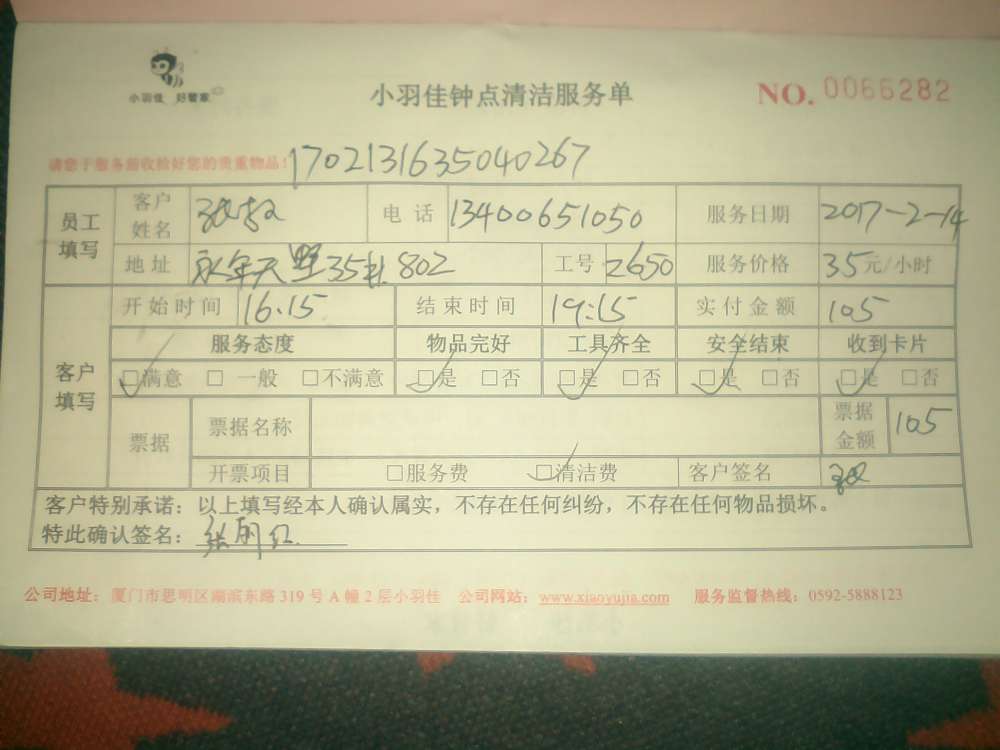 小羽佳 好管家
小羽佳钟点清洁服务单 NO. 0066282
请您于服务前收检好您的贵重物品! 1702131635040267
员工填写 客户姓名 电话 13400651050 服务日期 2017-2-14
地址 永年天墅35#802 工号 2650 服务价格 35元/小时
客户填写 开始时间 16:15 结束时间 19:15 实付金额 105
服务态度 物品完好 工具齐全 安全结束 收到卡片
☑满意 □一般 □不满意 ☑是 □否 ☑是 □否 ☑是 □否 ☑是 □否
票据 票据名称 票据金额 105
开票项目 □服务费 ☑清洁费 客户签名
客户特别承诺：以上填写经本人确认属实，不存在任何纠纷，不存在任何物品损坏。
特此确认签名：张丽红
公司地址：厦门市思明区湖滨东路319号A幢2层小羽佳 公司网站：www.xiaoyujia.com 服务监督热线：0592-5888123